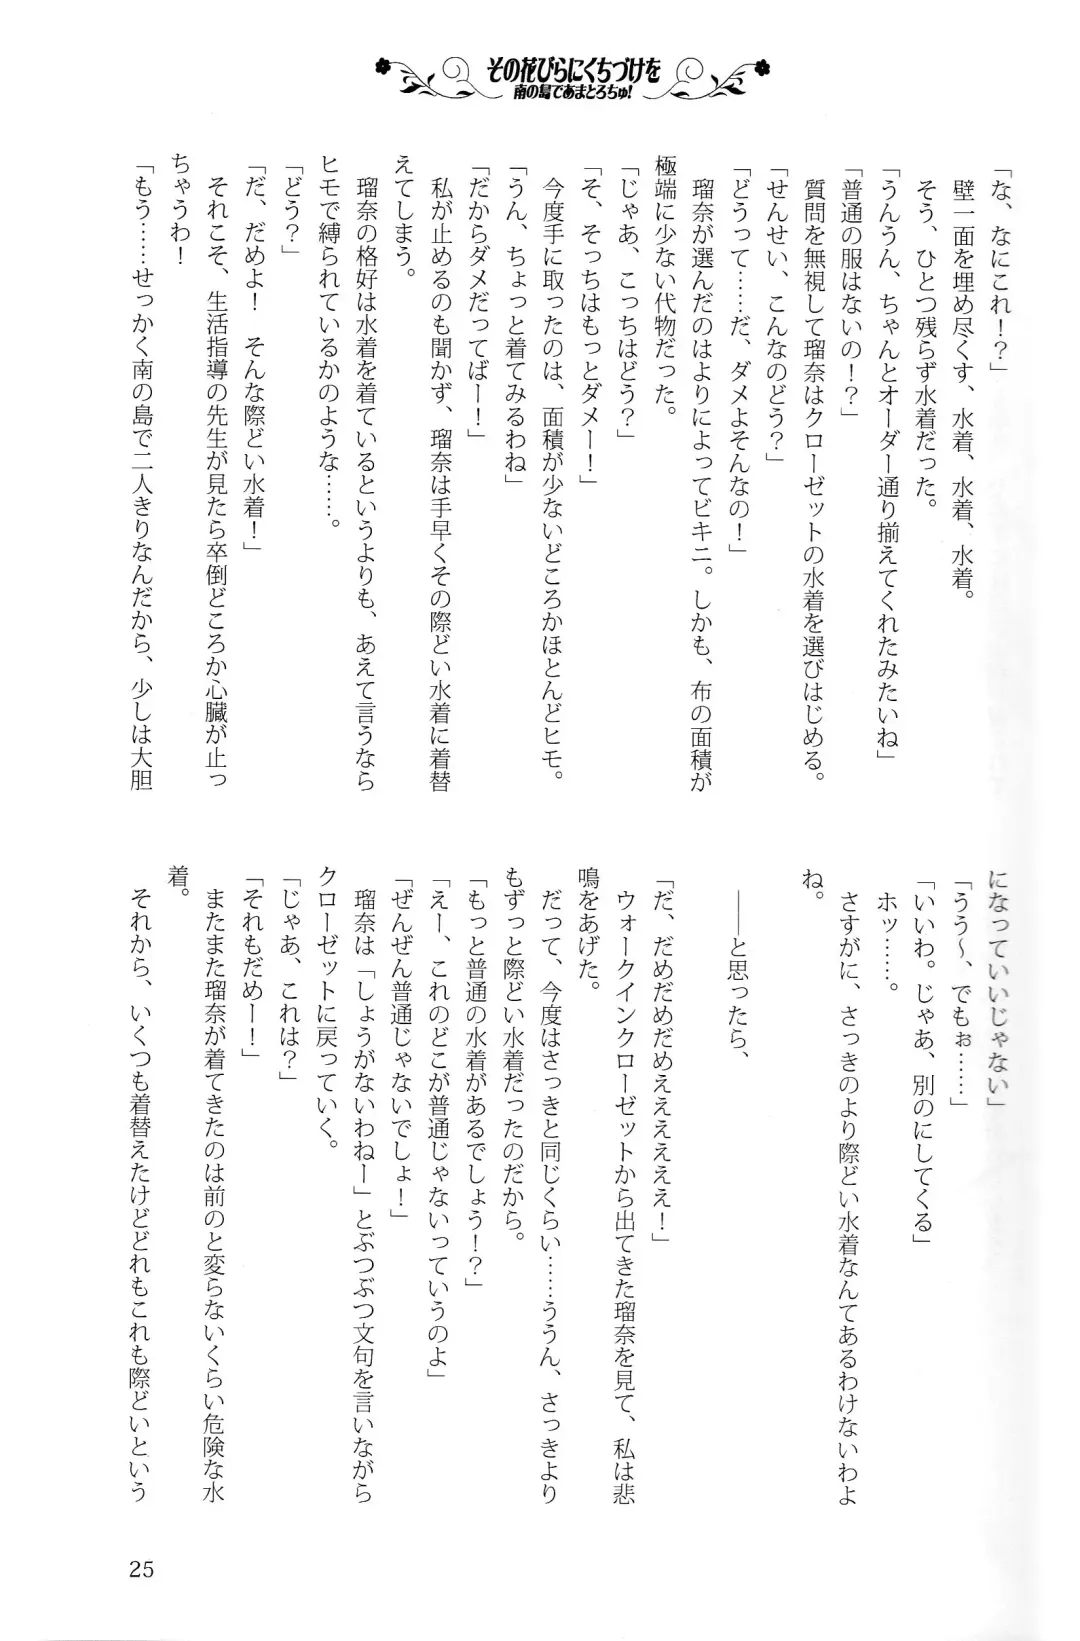 その花びらにくちづけを
南の島であまとろちゅ!
「な、なにこれ!?」
壁一面を埋め尽くす、水着、水着、水着。
そう、ひとつ残らず水着だった。
「うんうん、ちゃんとオーダー通り揃えてくれたみたいね」
「普通の服はないの!?」
質問を無視して瑠奈はクローゼットの水着を選びはじめる。
「せんせい、こんなのどう?」
「どうって……だ、ダメよそんなの!」
瑠奈が選んだのはよりによってビキニ。しかも、布の面積が
極端に少ない代物だった。
「じゃあ、こっちはどう?」
「そ、そっちはもっとダメー!」
今度手に取ったのは、面積が少ないどころかほとんどヒモ。
「うん、ちょっと着てみるわね」
「だからダメだってばー!」
私が止めるのも聞かず、瑠奈は手早くその際どい水着に着替
えてしまう。
瑠奈の格好は水着を着ているというよりも、あえて言うなら
ヒモで縛られているかのような……。
「どう?」
「だ、だめよ! そんな際どい水着!」
それこそ、生活指導の先生が見たら卒倒どころか心臓が止っ
ちゃうわ!
「もう……せっかく南の島で二人きりなんだから、少しは大胆
になっていいじゃない」
「うう〜、でもぉ……」
「いいわ。じゃあ、別のにしてくる」
ホッ……。
さすがに、さっきのより際どい水着なんてあるわけないわよ
ね。
――と思ったら、
「だ、だめだめだめええええええ!」
ウォークインクローゼットから出てきた瑠奈を見て、私は悲
鳴をあげた。
だって、今度はさっきと同じくらい……ううん、さっきより
もずっと際どい水着だったのだから。
「もっと普通の水着があるでしょう!?」
「えー、これのどこが普通じゃないっていうのよ」
「ぜんぜん普通じゃないでしょ!」
瑠奈は「しょうがないわねー」とぶつぶつ文句を言いながら
クローゼットに戻っていく。
「じゃあ、これは?」
「それもだめー!」
またまた瑠奈が着てきたのは前のと変らないくらい危険な水
着。
それから、いくつも着替えたけどどれもこれも際どいという
25